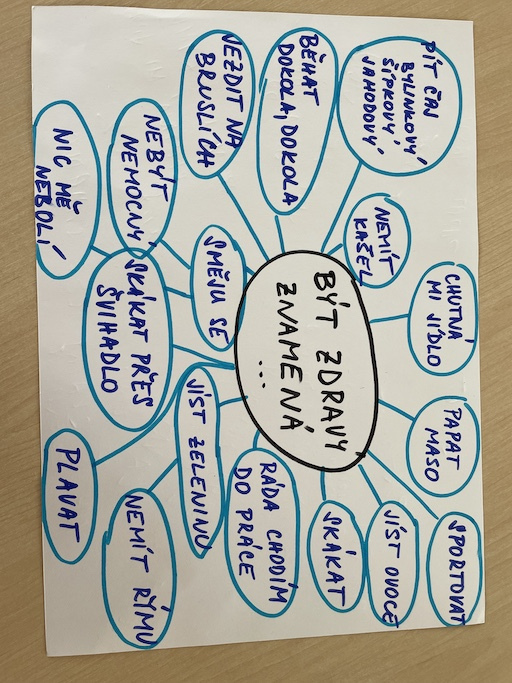 BÝT ZDRAVÝ
ZNAMENÁ
...
PÍT ČAJ
BYLINKOVÝ,
ŠÍPKOVÝ,
JAHODOVÝ
NEMÍT
KAŠEL
CHUTNÁ
MI JÍDLO
PAPAT
MASO
SPORTOVAT
JÍST OVOCE
SKÁKAT
RÁDA CHODÍM
DO PRÁCE
JÍST ZELENINU
NEMÍT RÝMU
PLAVAT
SKÁKAT PŘES
ŠVIHADLO
SMĚJU SE
NIC MĚ
NEBOLÍ
NEBÝT
NEMOCNÝ
JEZDIT NA
BRUSLÍCH
BĚHAT
DOKOLA, DOKOLA